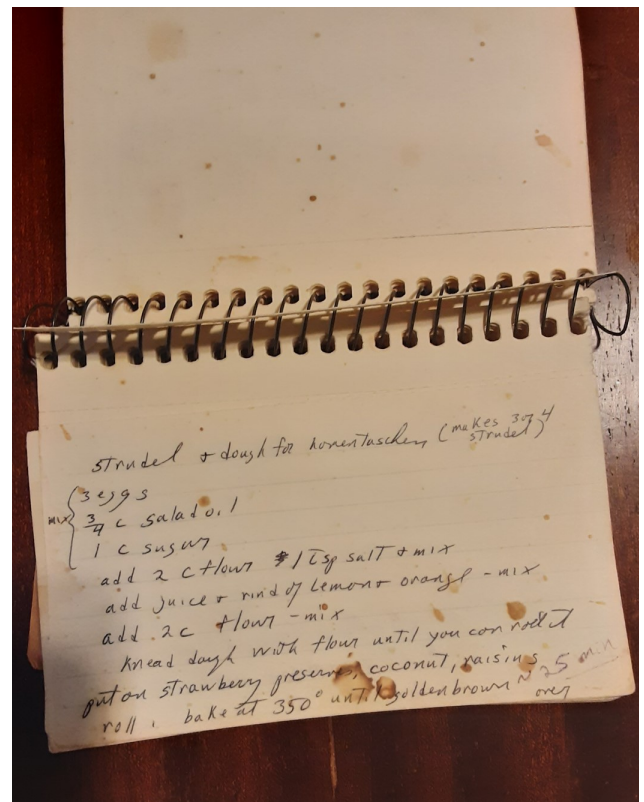 strudel + dough for homentaschen (makes 3 or 4 strudel)
mix { 3 eggs
3/4 c salad oil
1 c sugar
add 2 c flour 1 tsp salt + mix
add juice + rind of lemon + orange - mix
add 2c flour - mix
knead dough with flour until you can roll it
put on strawberry preserves, coconut, raisins
roll. bake at 350° until golden brown ~ 25 min
oven